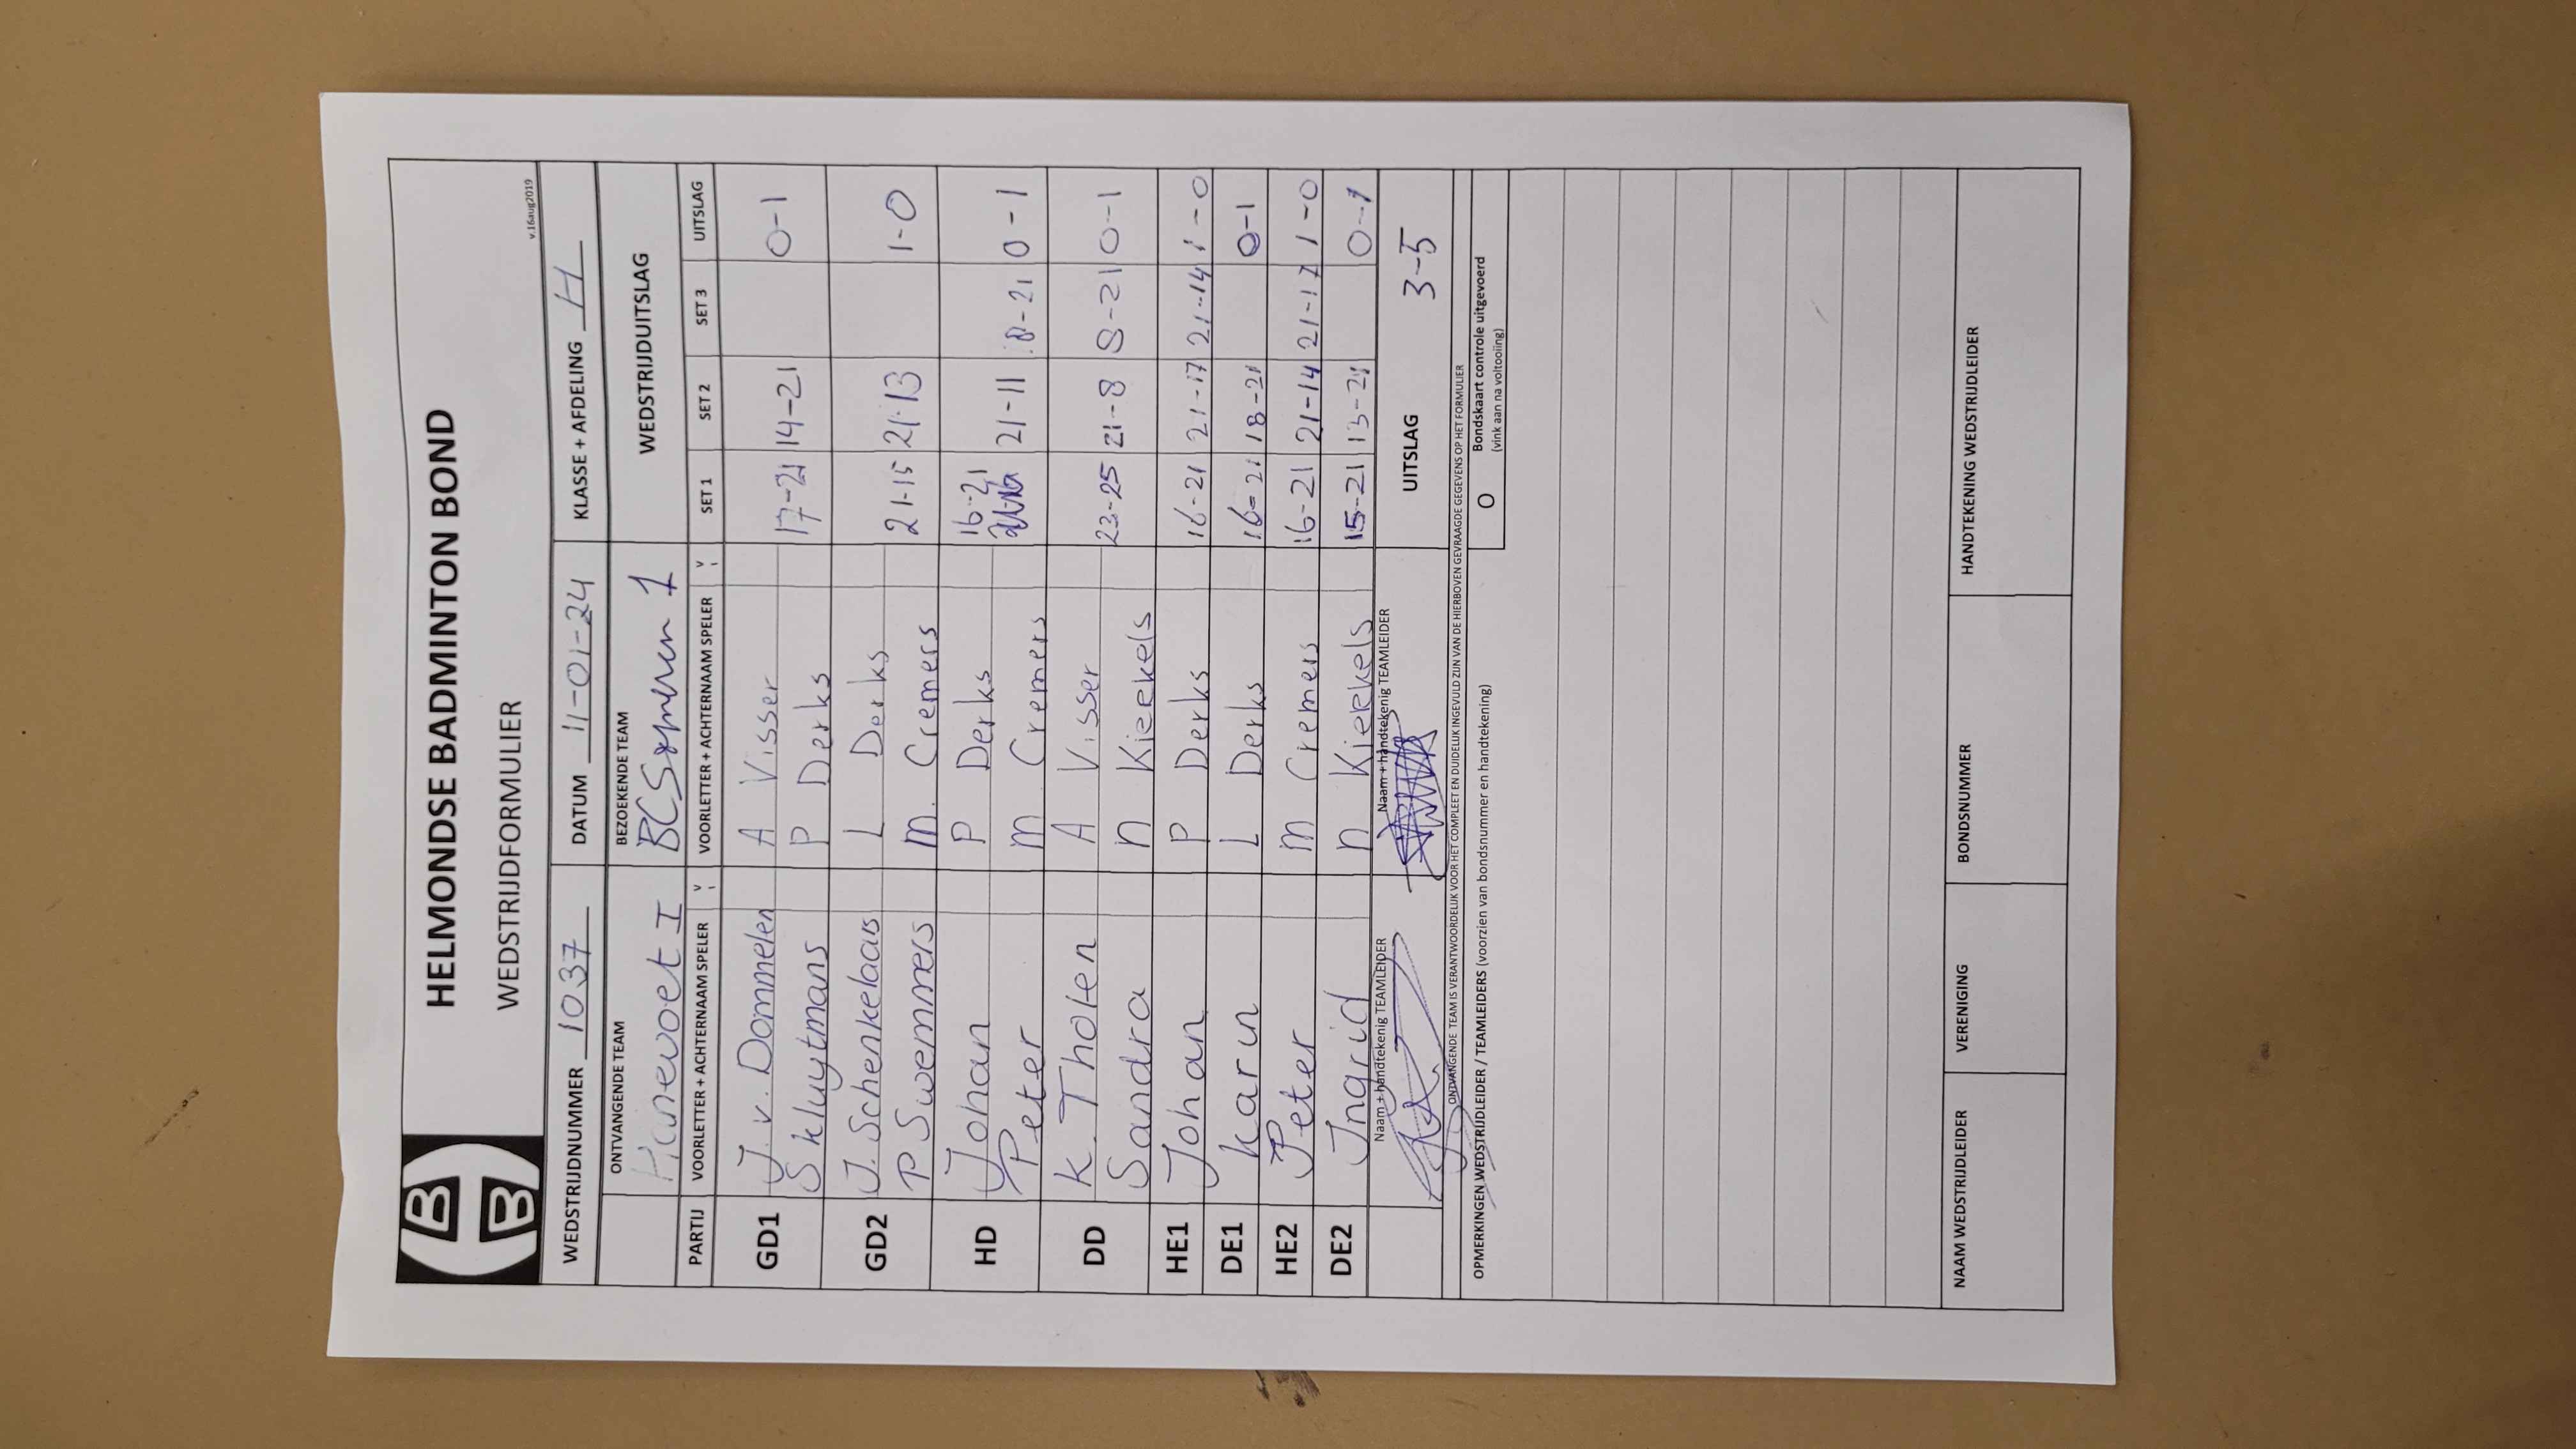 HELMONDSE BADMINTON BOND
WEDSTRIJDFORMULIER
v.16aug2019
WEDSTRIJDNUMMER 1037 DATUM 11-01-24 KLASSE + AFDELING H
ONTVANGENDE TEAM BEZOEKENDE TEAM WEDSTRIJDUITSLAG
Hanevoet I BC Someren 1
PARTIJ VOORLETTER + ACHTERNAAM SPELER V I VOORLETTER + ACHTERNAAM SPELER V I SET 1 SET 2 SET 3 UITSLAG
GD1 J. v. Dommelen A Visser
S kluytmans P Derks 17-21 14-21 0-1
GD2 J. Schenkelaars L Derks
P Swemmers M. Cremers 21-15 21-13 1-0
HD Johan P Derks 16-21
Peter M Cremers 21-11 18-21 0-1
DD K. Tholen A Visser
Sandra n Kiekels 23-25 21-8 8-21 0-1
HE1 Johan P Derks 16-21 21-17 21-14 1-0
DE1 Karin L Derks 16-21 18-21 0-1
HE2 Peter M Cremers 16-21 21-14 21-17 1-0
DE2 Ingrid n Kiekels 15-21 13-21 0-1
Naam + handtekenig TEAMLEIDER Naam + handtekenig TEAMLEIDER UITSLAG 3-5
ONTVANGENDE TEAM IS VERANTWOORDELIJK VOOR HET COMPLEET EN DUIDELIJK INGEVULD ZIJN VAN DE HIERBOVEN GEVRAAGDE GEGEVENS OP HET FORMULIER
OPMERKINGEN WEDSTRIJDLEIDER / TEAMLEIDERS (voorzien van bondsnummer en handtekening) O Bondskaart controle uitgevoerd
(vink aan na voltooiing)
NAAM WEDSTRIJDLEIDER VERENIGING BONDSNUMMER HANDTEKENING WEDSTRIJDLEIDER